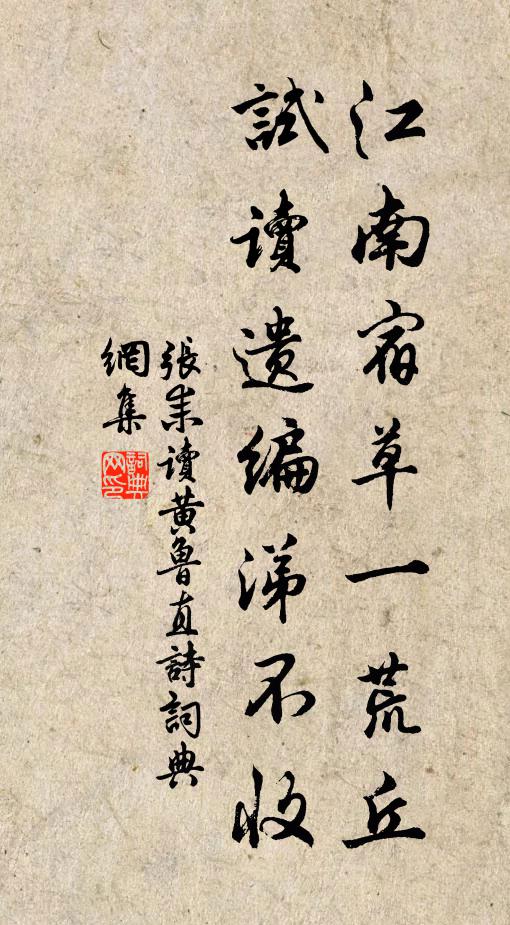 江南宿草一荒丘
試讀遺編涕不收
張耒讀黃魯直詩詞典
網集
詞典
网印